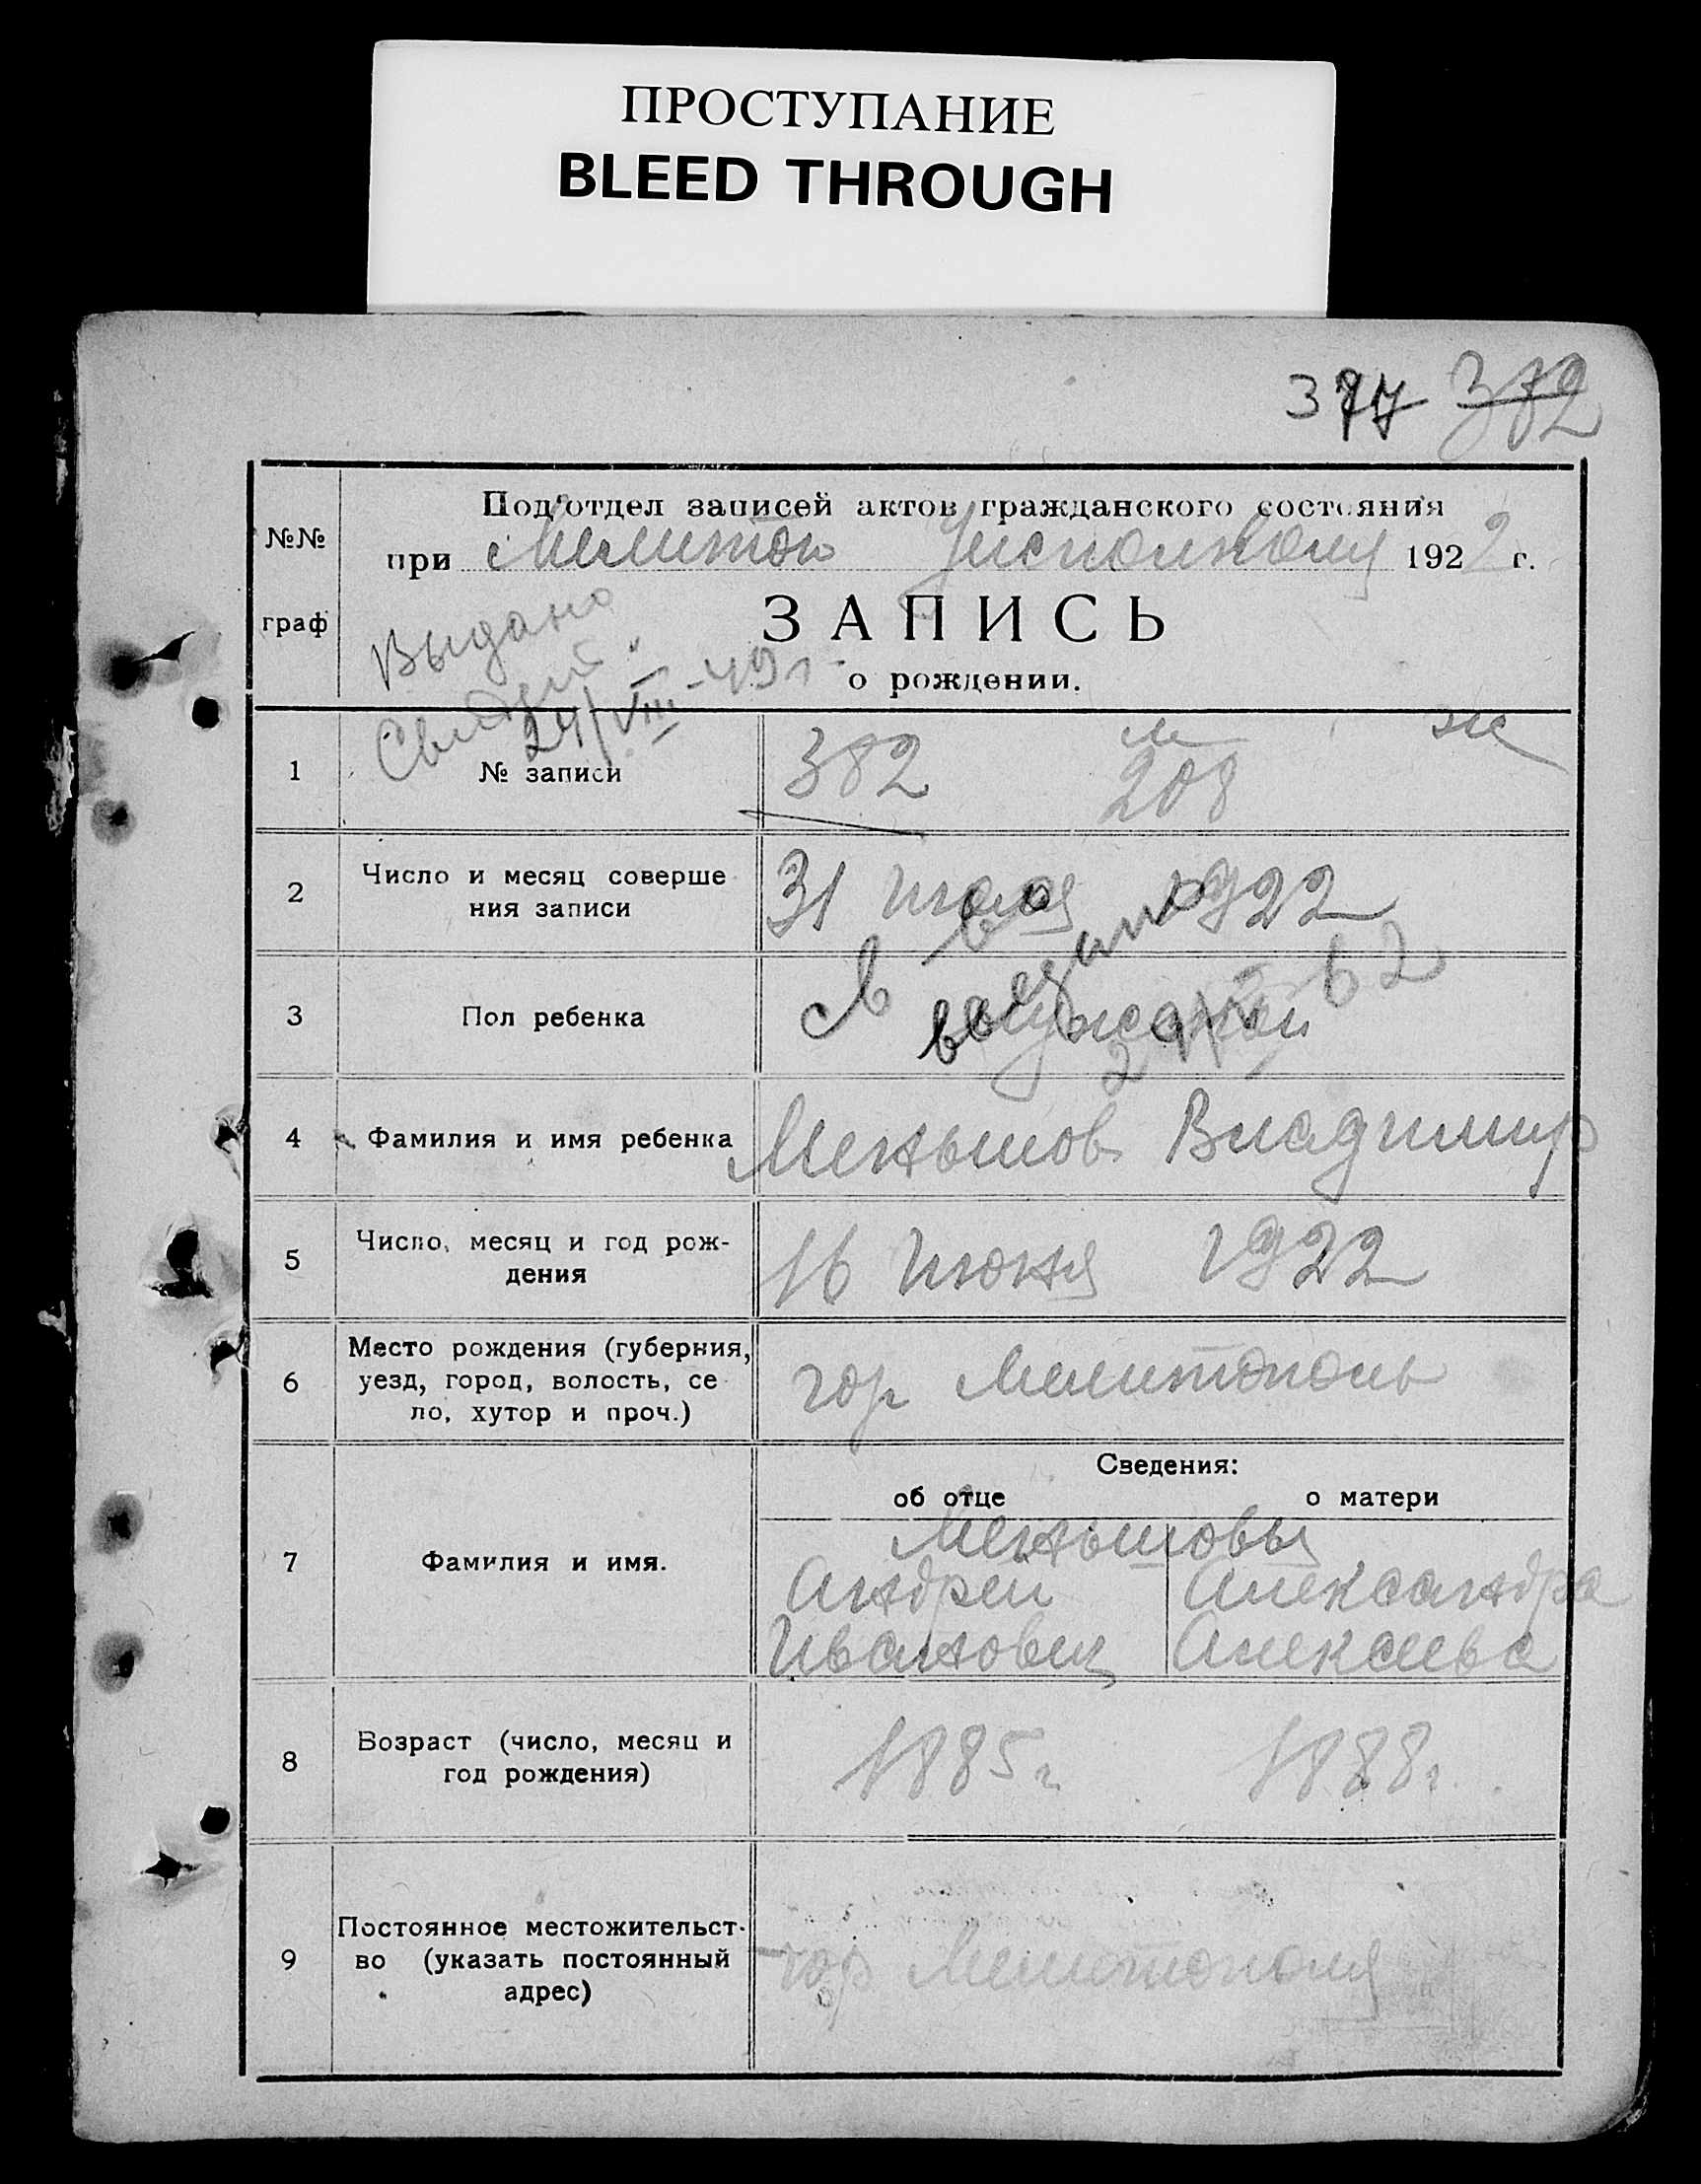 ПРОСТУПАНИЕ
BLEED THROUGH
377 382
№№
граф
Под'отдел записей актов гражданского состояния
при Мелитоп Уисполкому 1922 г.
ЗАПИСЬ
о рождении.
Выдано
24/VIII-49 г
1 № записи 382 м 208 ж
2 Число и месяц соверше
ния записи 31 июля 1922
3 Пол ребенка мужской
св во
выдано
62
4 Фамилия и имя ребенка Меньшов Владимир
5 Число, месяц и год рож-
дения 16 Июня 1922
6 Место рождения (губерния,
уезд, город, волость, се
ло, хутор и проч.) гор Мелитополь
Сведения:
об отце о матери
7 Фамилия и имя. Меньшовы
Андрей Александра
Иванович Алексеева
8 Возраст (число, месяц и
год рождения) 1885 г 1888 г.
9 Постоянное местожительст-
во (указать постоянный
адрес) гор Мелитополя